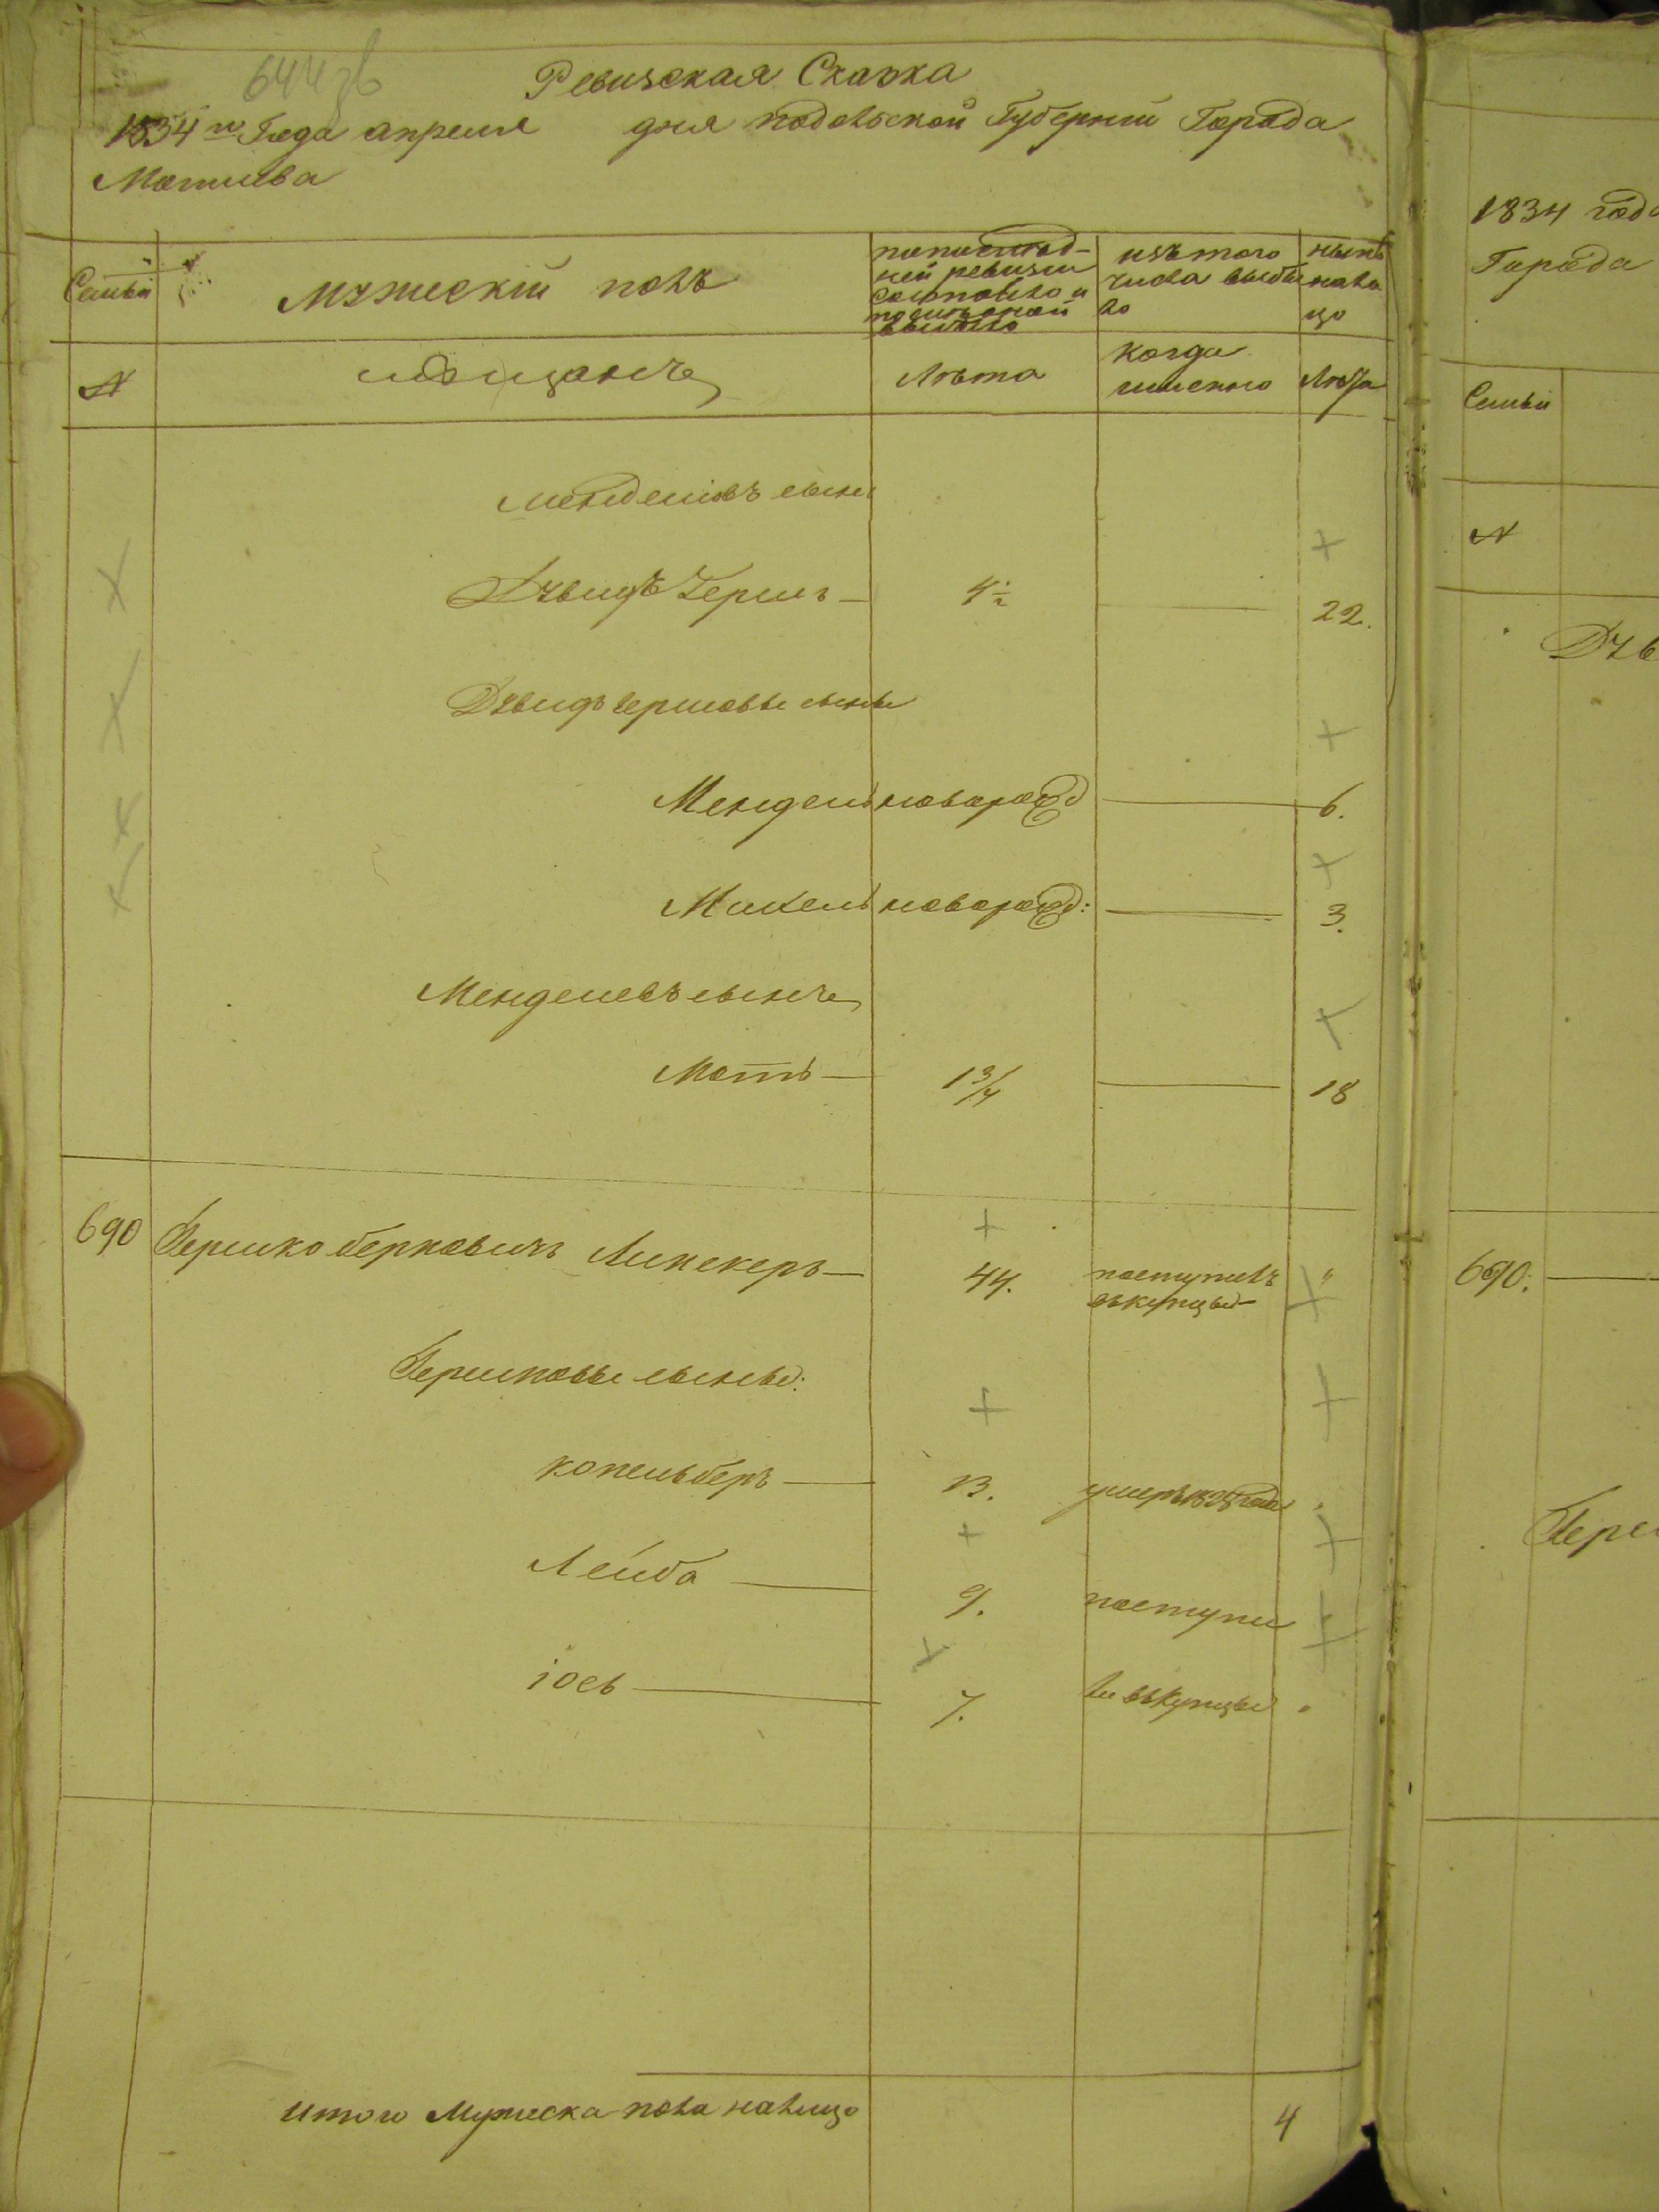 644 зв
Ревизская Сказка
1834го Года апреля дня подольской Губернии Города
Могилева
Семьи
Мужескій полъ
по последней ревизіи состояло и после оной выбыло
изъ того числа выбыло
нынѣ на лицо
№
мѣщане
Лѣта
когда именно
Лѣта
Менделювъ сынъ
Дувидъ Гершъ 4½ 22.
Дувидъ Гершовы сыны
Мендель новорожд 6.
Михель новорожд: 3.
Менделевъ сынъ
Моть 1 3/4 18
690 Гершко Берковичъ 44. поступилъ въ купцы "
Гершковы сыны:
Копель Беръ 13. умеръ года
Лейба 9. поступи
Іось 7. ли въ купцы "
Итого Мужеска пола на лицо 4
1834 года
Города
Семьи
№
Дув
690.
Герш